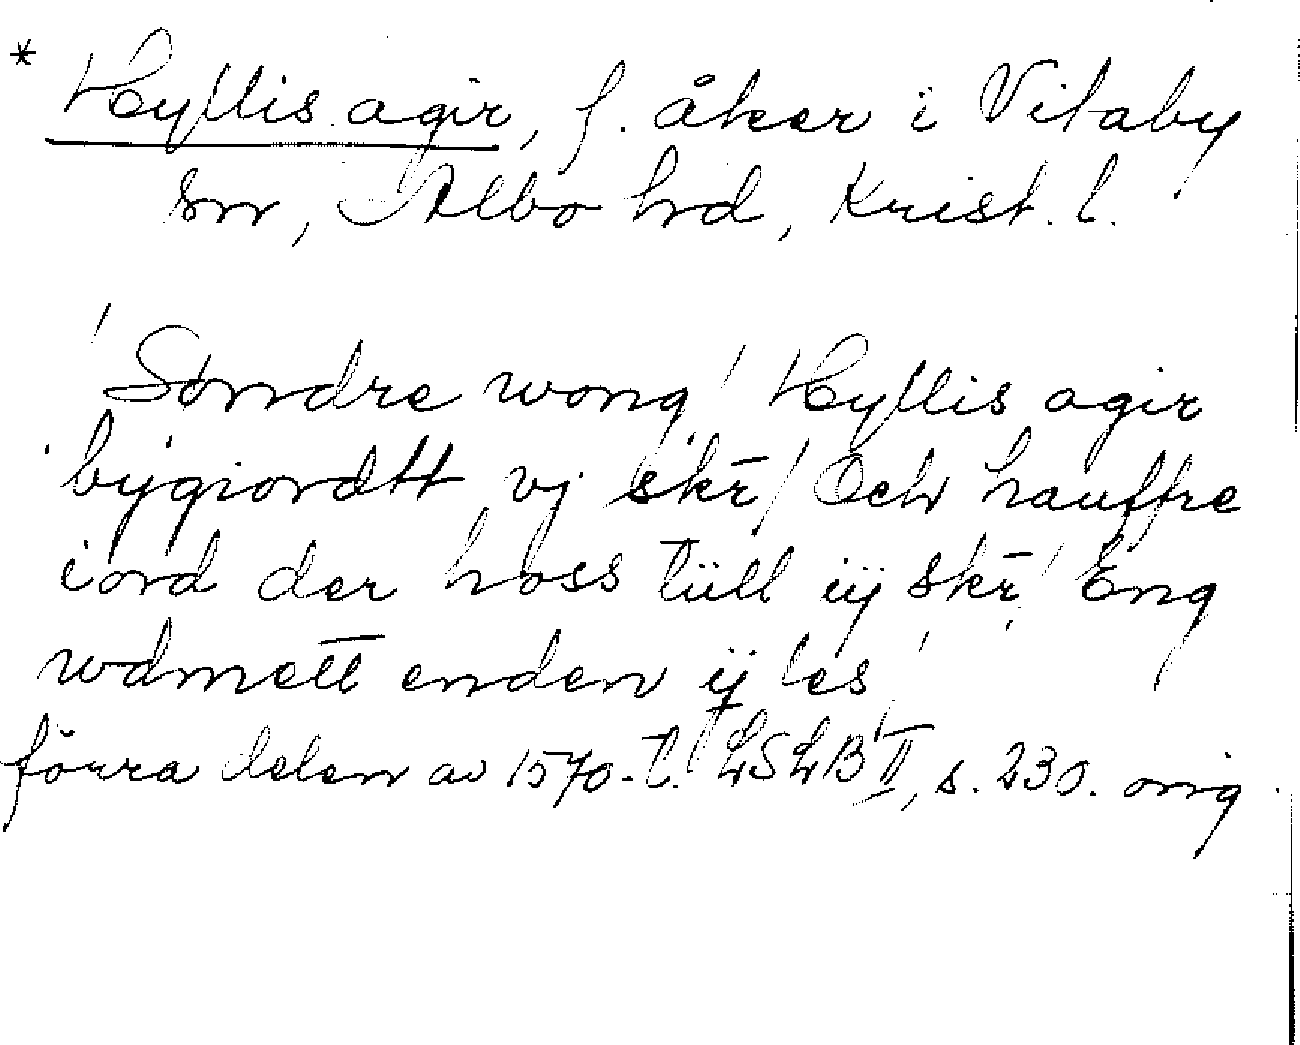 * Hyllis agir, f. åker i Vitaby
sn, Albo hd, Krist. l.
'Søndre wong' Hyllis agir
bygiordtt vj skr̄ / Och hauffre
iord der hoss tüll iij skr̄ / Eng
wdmett enden ij les'
förra delen av 1570-t. LSLB II, s. 230. orig.